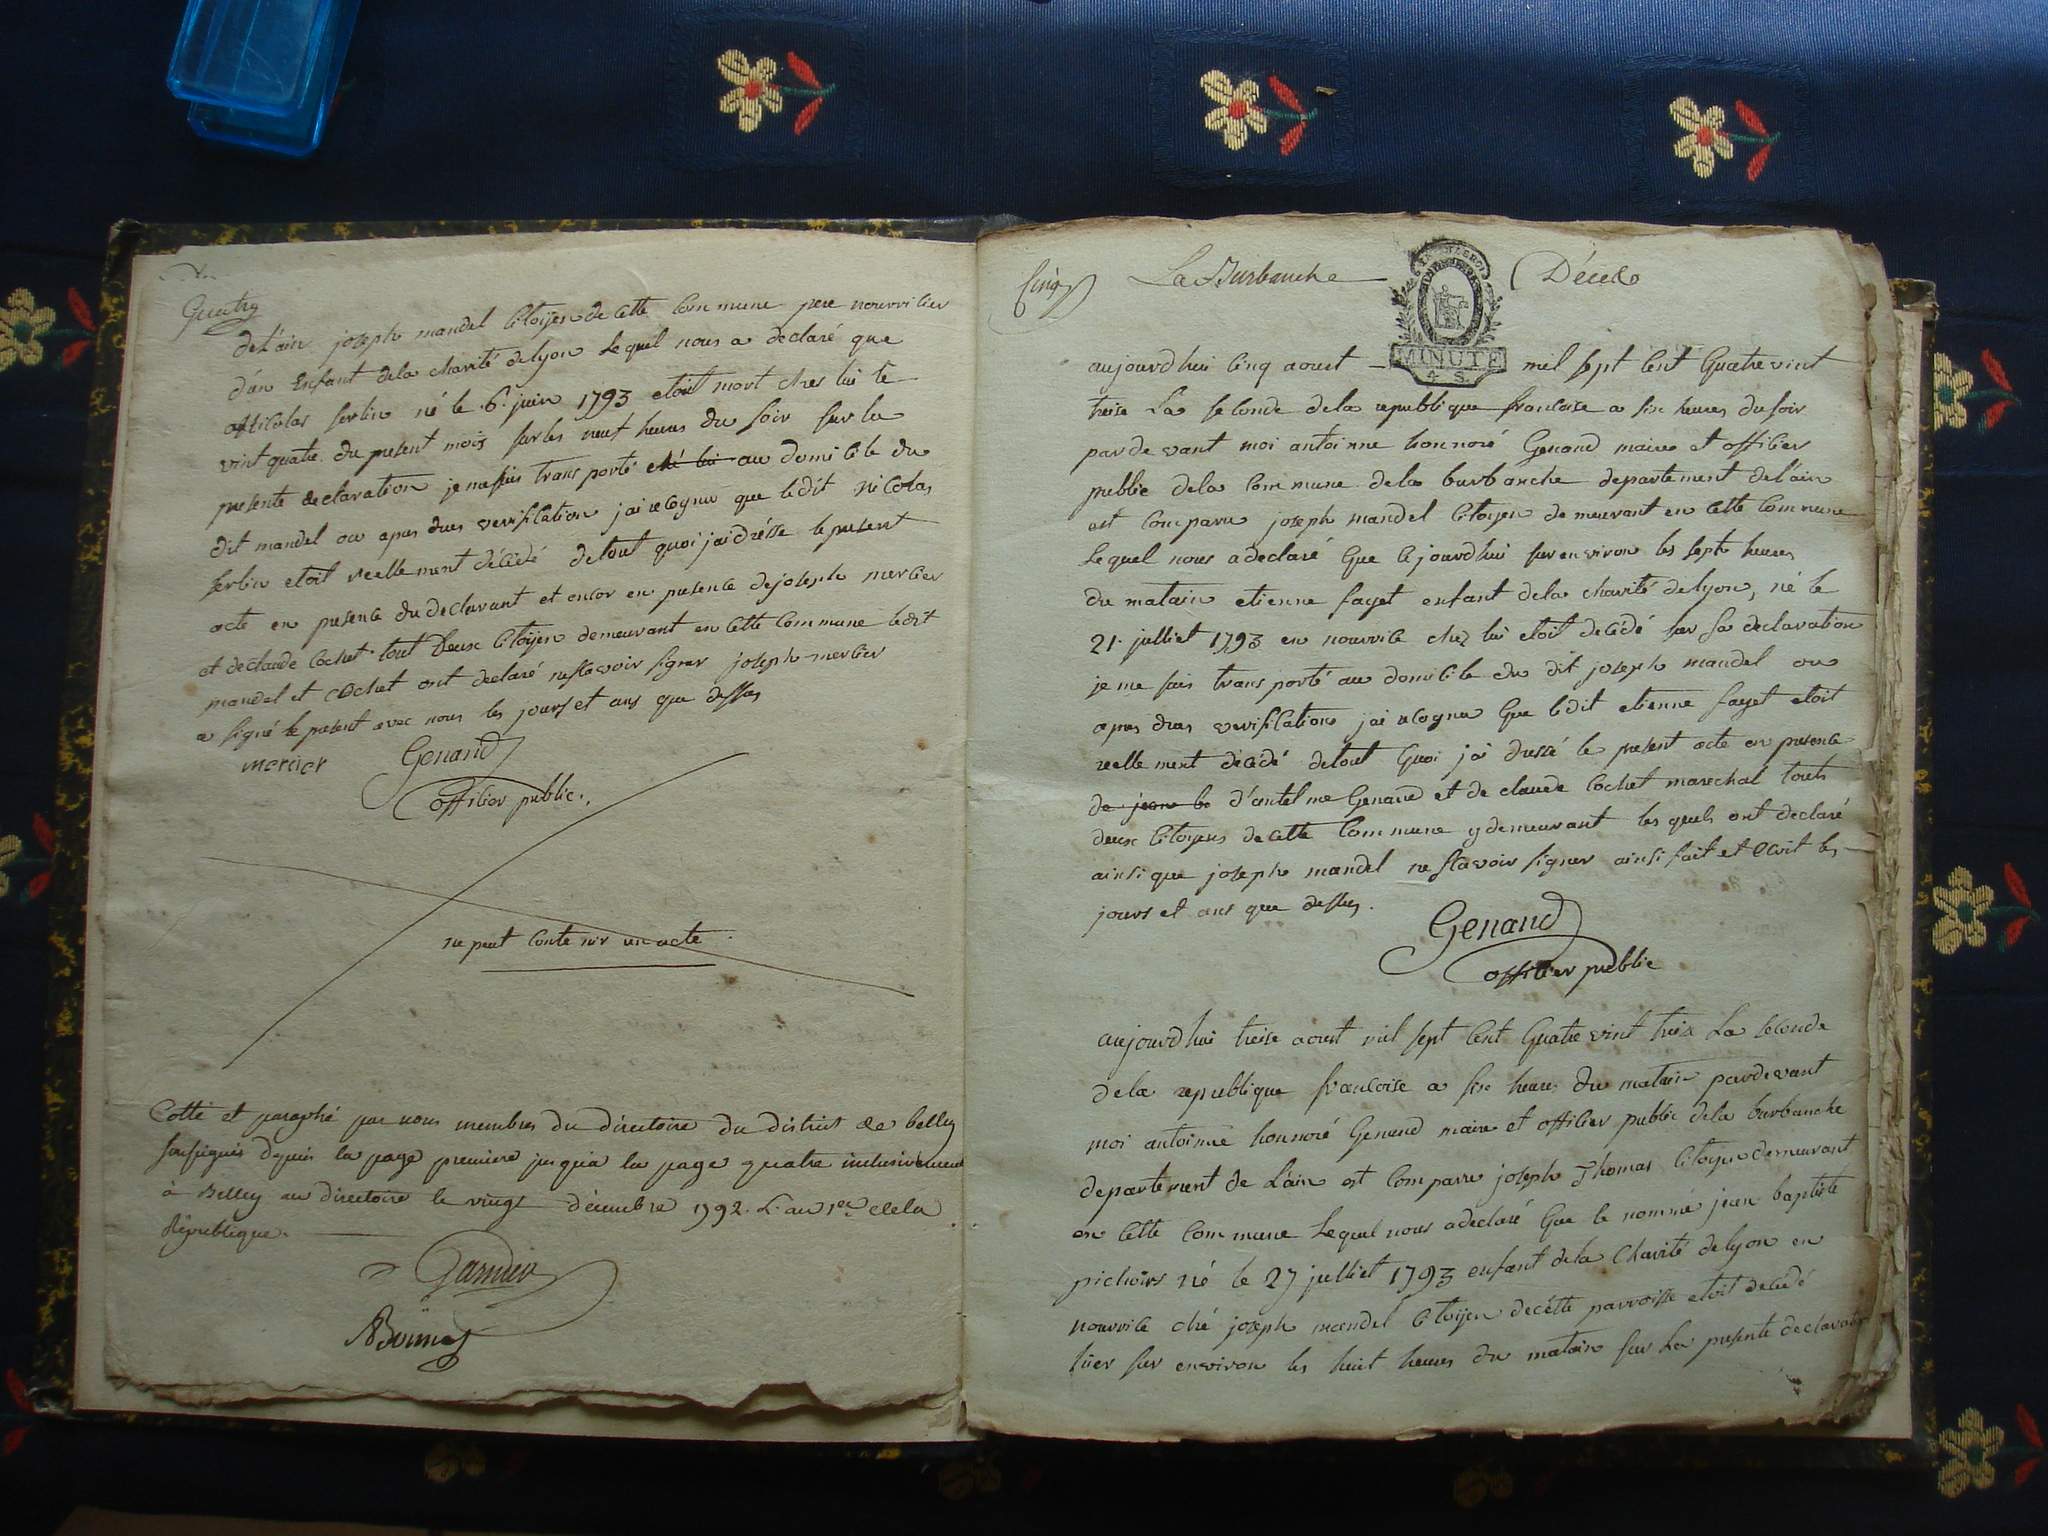 Quatre
de Lain joseph mandel Citoÿen de Cette Commune pere nourricier
d'un Enfant dela charité delyon Lequel nous a declaré que
Nicolas serlin né le 6. juin 1793 etoit mort ches lui le
vint quatre du present mois sur les neuf heures du soir sur la
presente declaration je me suis transporté ché lui au domicile du
dit mandel ou apres dues verification jai recognu que ledit Nicolas
serlin etoit reellement décédé de tout quoi jai drésse le present
acte en presence du declarant et encor en presence de joseph mercier
et declaude Cochet tout Deux Citoÿen demeurant en Cette Commune ledit
mandel et Cochet ont declaré ne scavoir signer joseph mercier
a signé le present avec nous les jours et ans que dessus
mercier Genand
officier public.
ne peut Contenir un acte.
Cotté et paraphé par nous membres du directoire du district de belley
soussignés depuis la page premiere jusqu'a la page quatre inclusivement
à Belley au directoire le vingt décembre 1792. L. an 1er. dela
République.
Garnier
Cinq La Burbanche Décéds
MINUTE
4 S.
aujourdhui Cinq aoust mil sept Cent Quatre vint
treise La seconde dela republique francoise a six heures du soir
pardevant moi antoinne honnoré Genand maire et officier
public dela Commune dela burbanche departement de lain
est Comparu joseph mandel Citoyen demeurant en Cette Commune
Lequel nous a declaré Que Cejourdhui sur environ les sept heures
du matain etienne fayet enfant dela charité delyon, né le
21. julliet 1793 en nourrice chez lui etoit decédé sur sa declaration
je me suis transporté au domicile du dit joseph mandel ou
apres dues verification jai recognu Que ledit etienne fayet etoit
reellement décédé de tout Quoi jai dressé le present acte en presence
de jean be d'antelme Genand et de claude Cochet marechal touts
deux Citoyens de Cette Commune y demeurant les quels ont declaré
ainsi que joseph mandel ne scavoir signer ainsi fait et ecrit les
jours et ans que dessus.
Genand
officier public
aujourdhui treise aoust mil sept Cent Quatre vint treis La seconde
dela republique francoise a six heures du matain pardevant
moi antoinne honnoré Genand maire et officier public dela burbanche
departement de Lain est Comparu joseph Thomas Citoyen demeurant
en Cette Commune Lequel nous a declaré Que le nommé jean baptiste
pichoirs né le 27 julliet 1793 enfant dela Charité delyon en
nourrice ché joseph mandel Citoÿen de cétte parroisse etoit decédé
hier sur environ les huit heures du matain sur La presente declaration